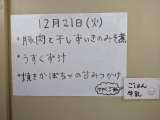 12月21日(火)
・豚肉と干しずいきのみそ煮
・うすくず汁
・焼きかぼちゃの甘みつかけ
ごはん
牛乳